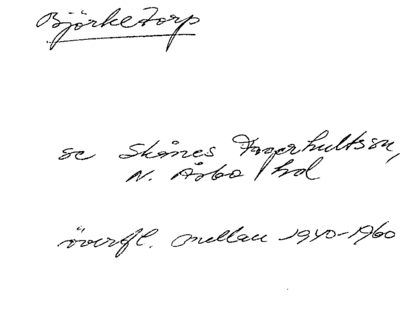 Björketorp
se Skånes Fagerhultssn,
N. Åsbo hd
överfl. mellan 1940-1960